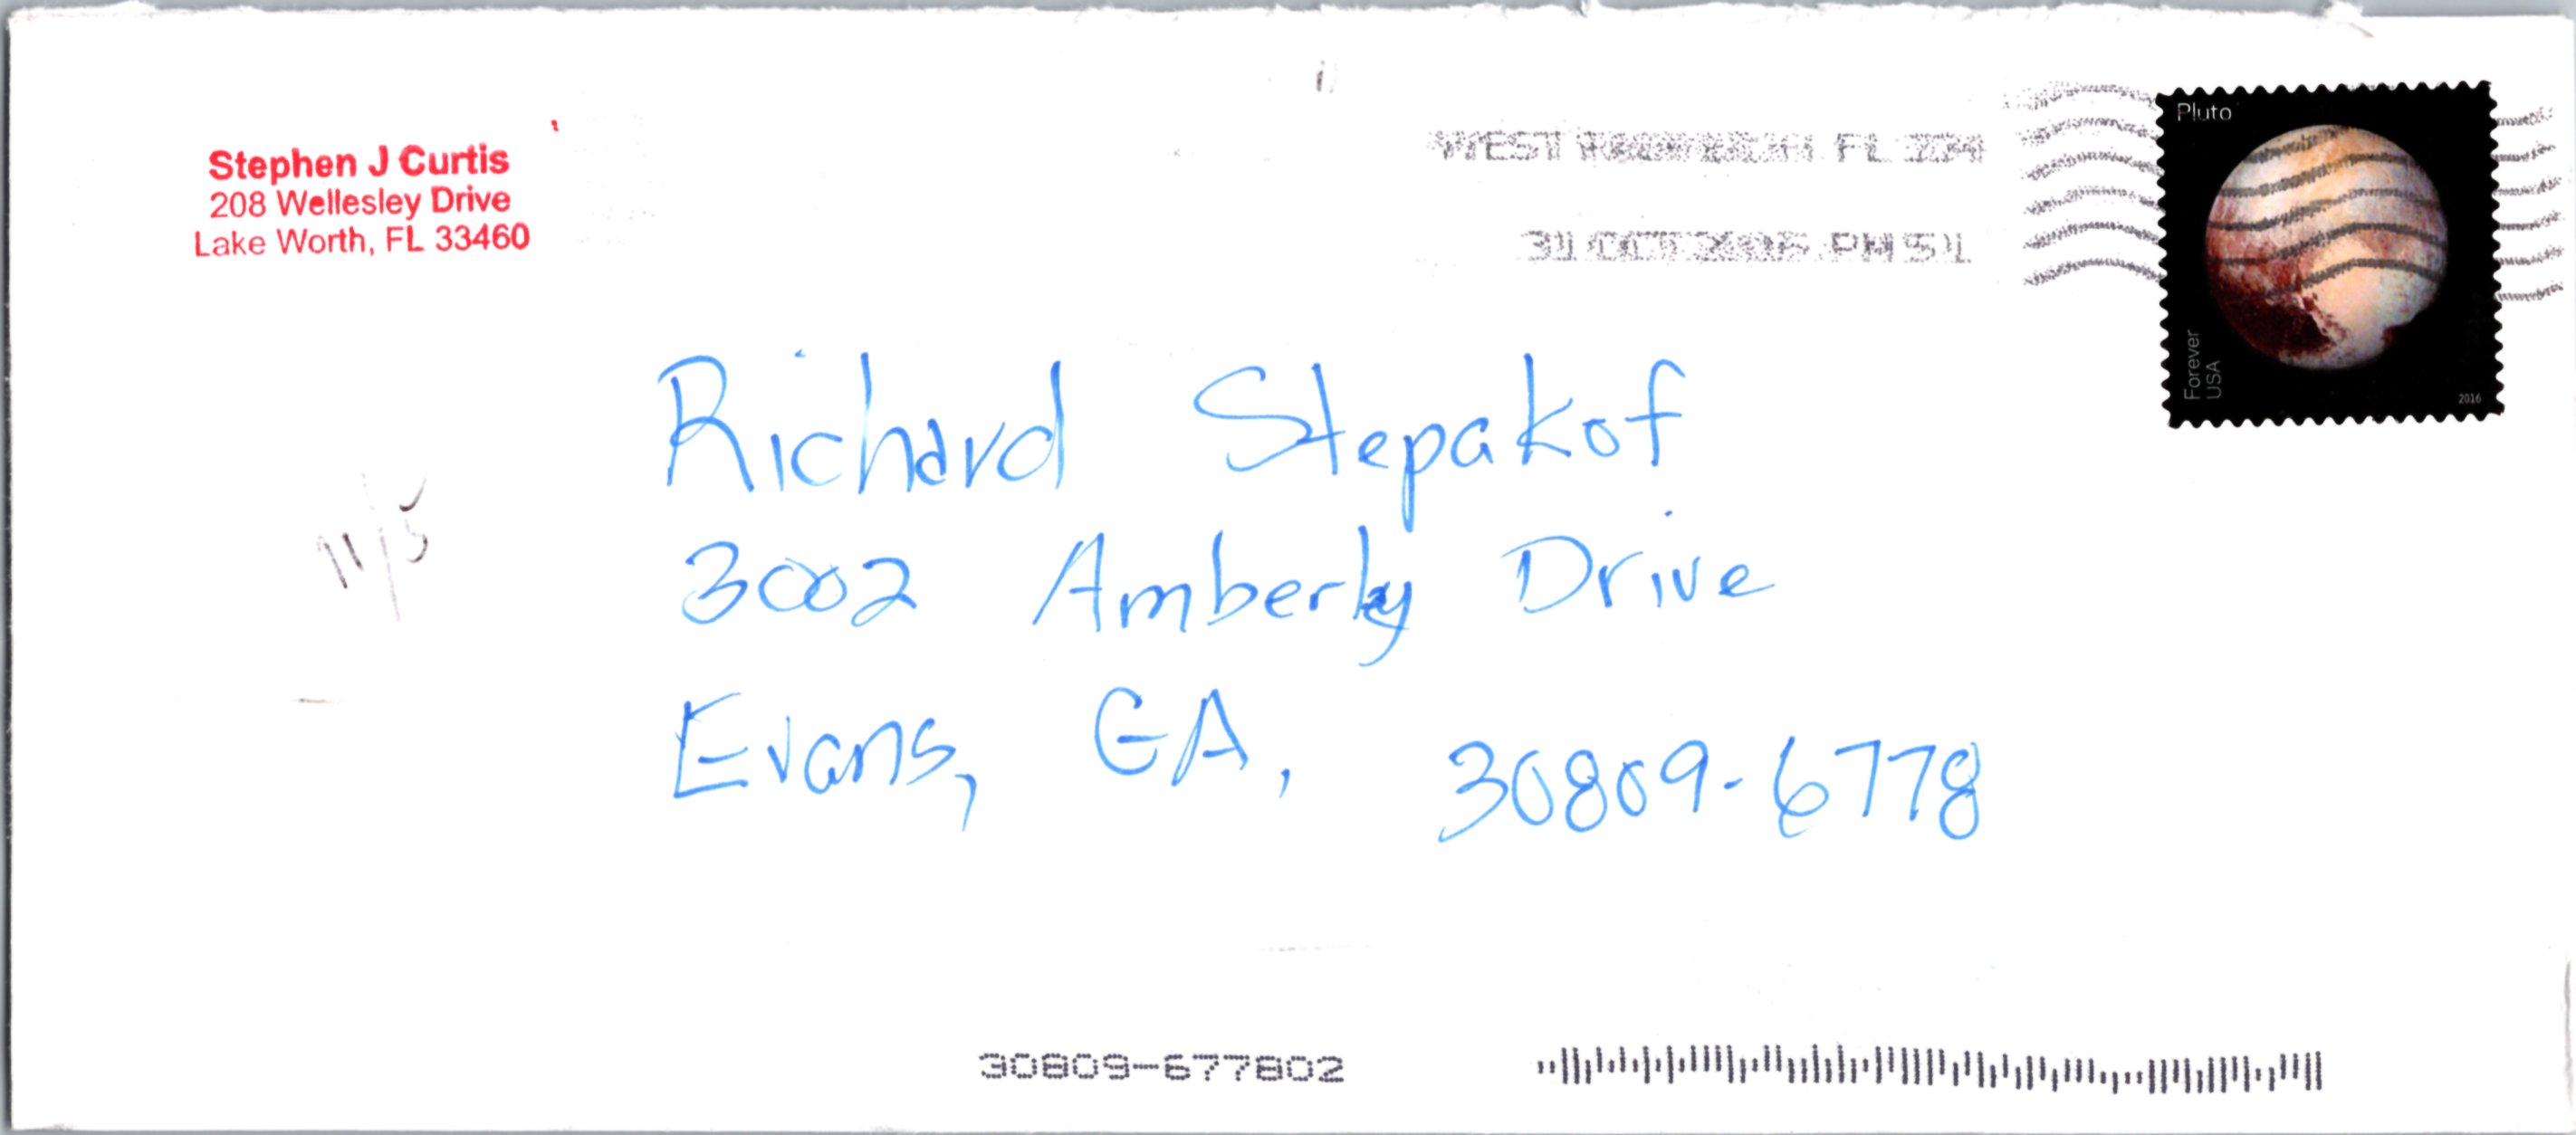 Stephen J Curtis
208 Wellesley Drive
Lake Worth, FL 33460
WEST FL
31 OCT PM 5 L
Pluto
Forever
USA
2016
Richard Stepakof
3002 Amberly Drive
Evans, GA, 30809-6778
11/5
30809-677802